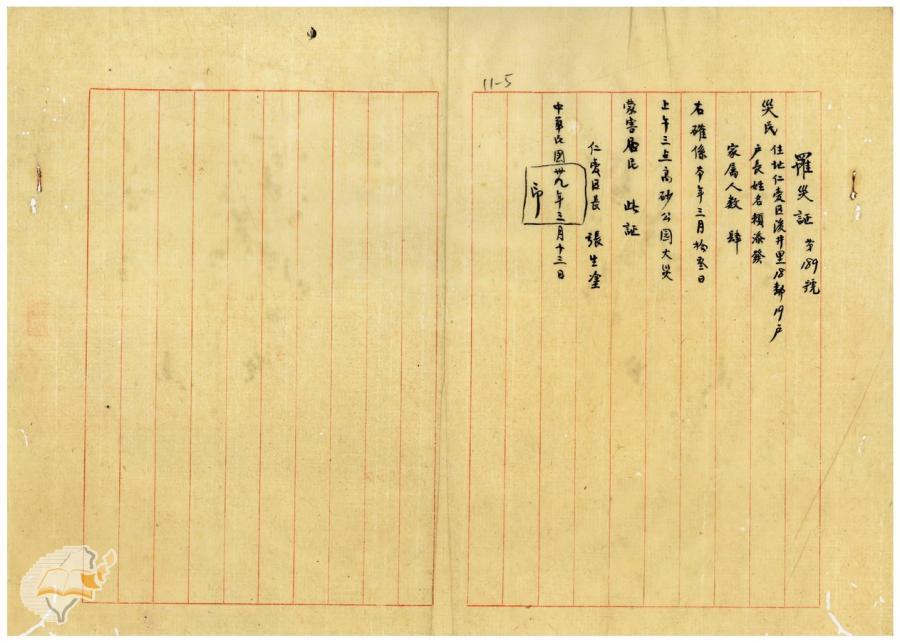 11-5
罹災証 第189號
災民 住址仁愛區後井里18鄰19户
户長姓名賴添發
家属人数 肆
右確係本年三月拾叁日
上午三点高砂公园大災
蒙害居民 此証
仁愛区長 張生塗
中華民國卅九年三月十三日
印